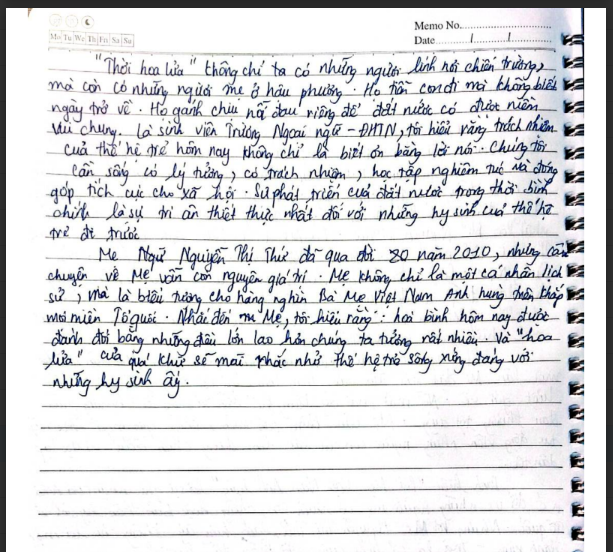 Memo No.
Mo Tu We Th Fri Sa Su
Date / /
"Thời hoa lửa" không chỉ ta có những người lính nơi chiến trường,
mà còn có những người mẹ ở hậu phương. Họ tiễn con đi mà không biết
ngày trở về. Họ gánh chịu nỗi đau riêng để đất nước có được niềm
vui chung. Là sinh viên Trường Ngoại ngữ - ĐHTN, tôi hiểu rằng trách nhiệm
của thế hệ trẻ hôm nay không chỉ là biết ơn bằng lời nói. Chúng tôi
cần sống có lý tưởng, có trách nhiệm, học tập nghiêm túc và đóng
góp tích cực cho xã hội. Sự phát triển của đất nước trong thời bình
chính là sự tri ân thiết thực nhất đối với những hy sinh của thế hệ
đi trước
Mẹ Nguyễn Thị Thứ đã qua đời năm 2010, nhưng câu
chuyện về Mẹ vẫn còn nguyên giá trị. Mẹ không chỉ là một cá nhân lịch
sử, mà là biểu tượng cho hàng nghìn Bà Mẹ Việt Nam Anh hùng trên khắp
mọi miền Tổ quốc. Nhắc đến Mẹ, tôi hiểu rằng: hoà bình hôm nay được
đánh đổi bằng những điều lớn lao hơn chúng ta tưởng rất nhiều. Và "hoa
lửa" của quá khứ sẽ mãi nhắc nhở thế hệ trẻ sống xứng đáng với
những hy sinh ấy.